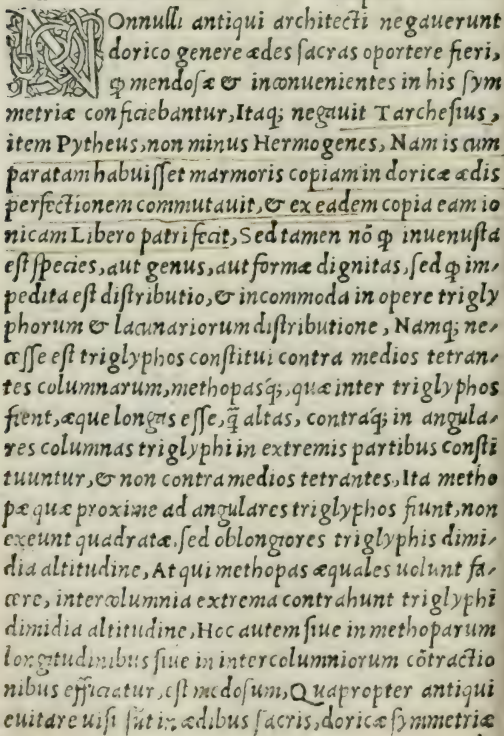 NOnnulli antiqui architecti negauerunt
dorico genere ædes sacras oportere fieri,
ꝙ mendosæ & inconuenientes in his sym
metriæ conficiebantur, Itaq; negauit Tarchesius,
item Pytheus, non minus Hermogenes, Nam is cum
paratam habuisset marmoris copiam in doricæ ædis
perfectionem commutauit, & ex eadem copia eam io
nicam Libero patri fecit, Sed tamen nõ ꝙ inuenusta
est species, aut genus, aut formæ dignitas, sed ꝙ im-
pedita est distributio, & incommoda in opere trigly
phorum & lacunariorum distributione, Namq; ne-
cesse est triglyphos constitui contra medios tetran-
tes columnarum, methopasq́;, quæ inter triglyphos
fient, æque longas esse, q̃ altas, contraq́; in angula-
res columnas triglyphi in extremis partibus consti
tuuntur, & non contra medios tetrantes, Ita metho
pæ quæ proxime ad angulares triglyphos fiunt, non
exeunt quadratæ, sed oblongiores triglyphis dimi-
dia altitudine, At qui methopas æquales uolunt fa-
cere, intercolumnia extrema contrahunt triglyphi
dimidia altitudine, Hoc autem siue in methoparum
longitudinibus siue in intercolumniorum cõtractio
nibus efficiatur, est mẽdosum, Quapropter antiqui
euitare uisi sũt in ædibus sacris, doricæ symmetriæ